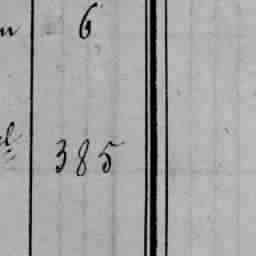 6
385